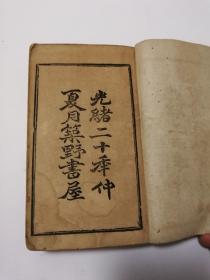 光緒二十季仲
夏月築野書屋